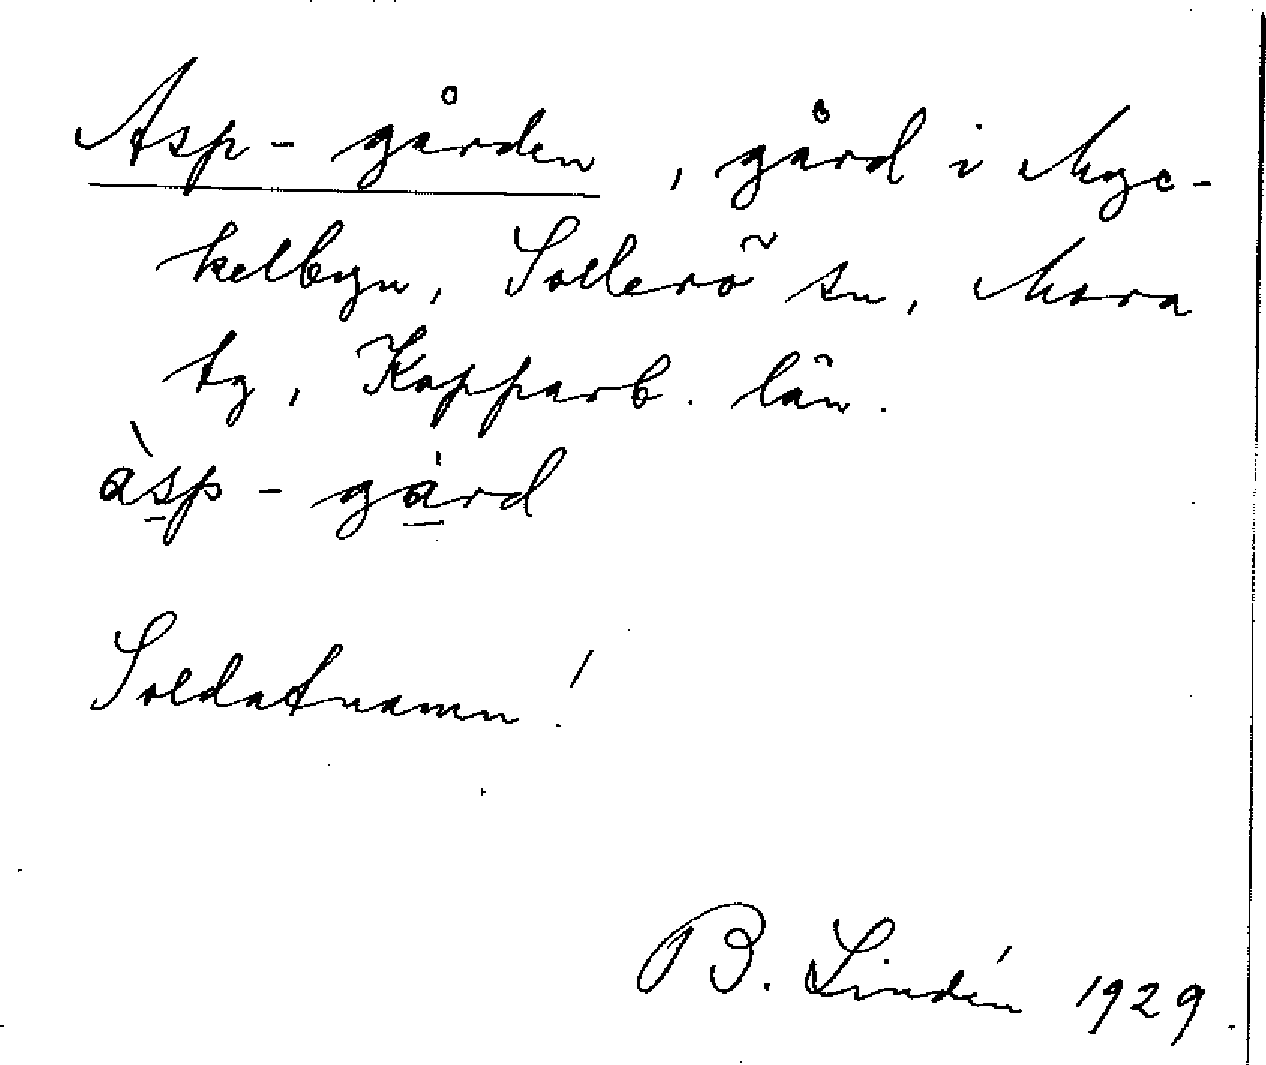 Asp-gården, gård i Myc-
kelbyn, Sollerö sn, Mora
tg, Kopparb. län.
àsp-gàrd
Soldatnamn!
B. Lindén 1929.